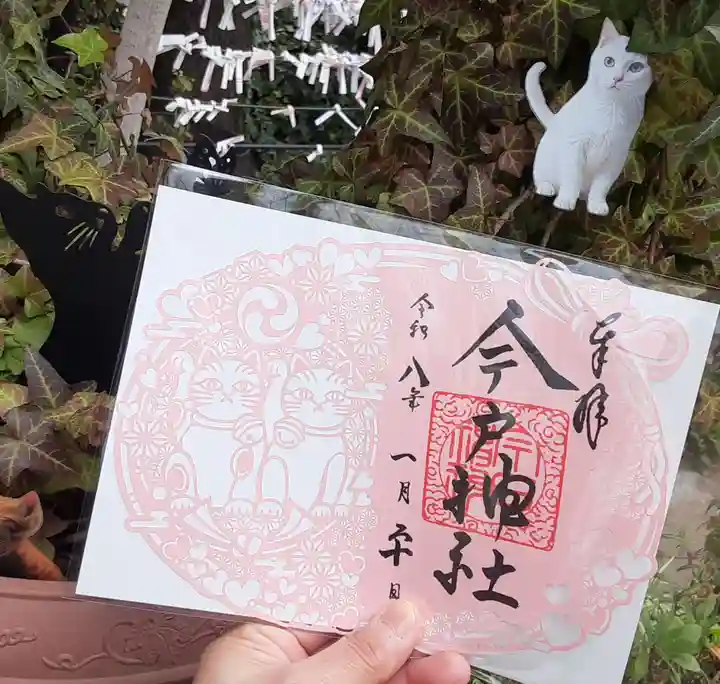 奉拝
今戸神社
令和八年一月二十日